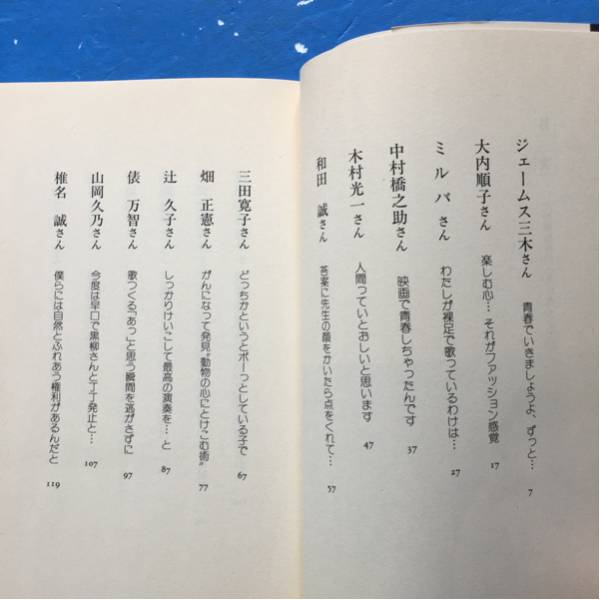 ジェームス三木さん 青春でいきましょうよ、ずっと… 7
大内順子さん 楽しむ心…それがファッション感覚 17
ミルバさん わたしが裸足で歌っているわけは… 27
中村橋之助さん 映画で青春しちゃったんです 37
木村光一さん 人間っていとおしいと思います 47
和田誠さん 答案に先生の顔をかいたら点をくれて… 57
三田寛子さん どっちかというとボーっとしている子で 67
畑正憲さん がんになって発見〝動物の心にとけこむ術〟 77
辻久子さん しっかりけいこして最高の演奏を…と 87
俵万智さん 歌つくる「あっ」と思う瞬間を逃がさずに 97
山岡久乃さん 今度は早口で黒柳さんと丁丁発止と… 107
椎名誠さん 僕らには自然とふれあう権利があるんだと 119